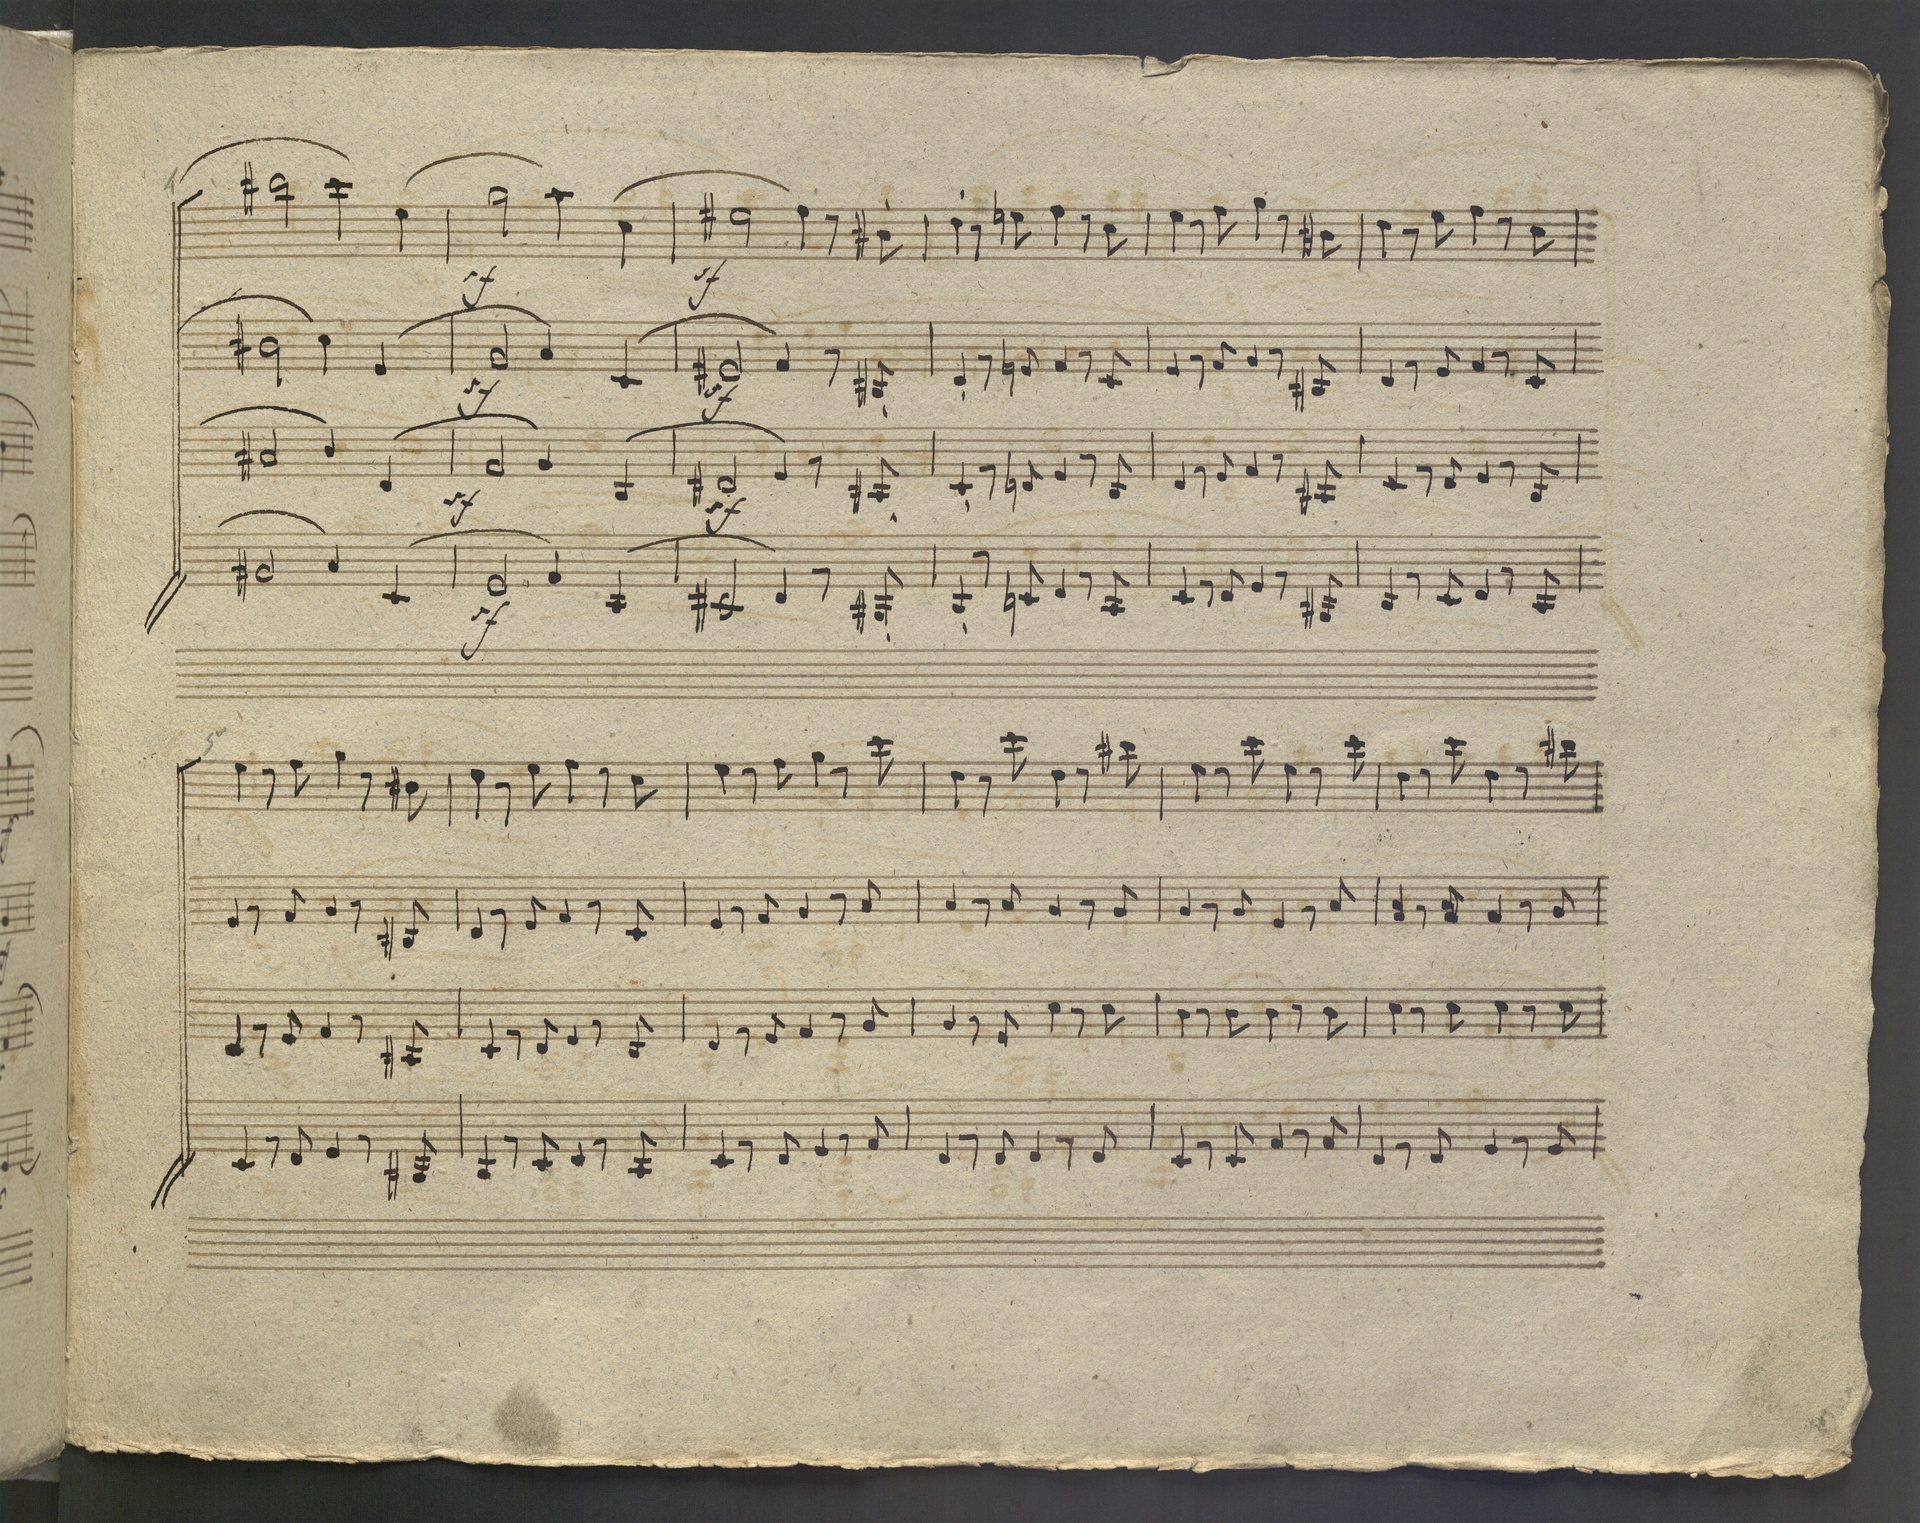 sf sf
sf sf
sf sf
sf